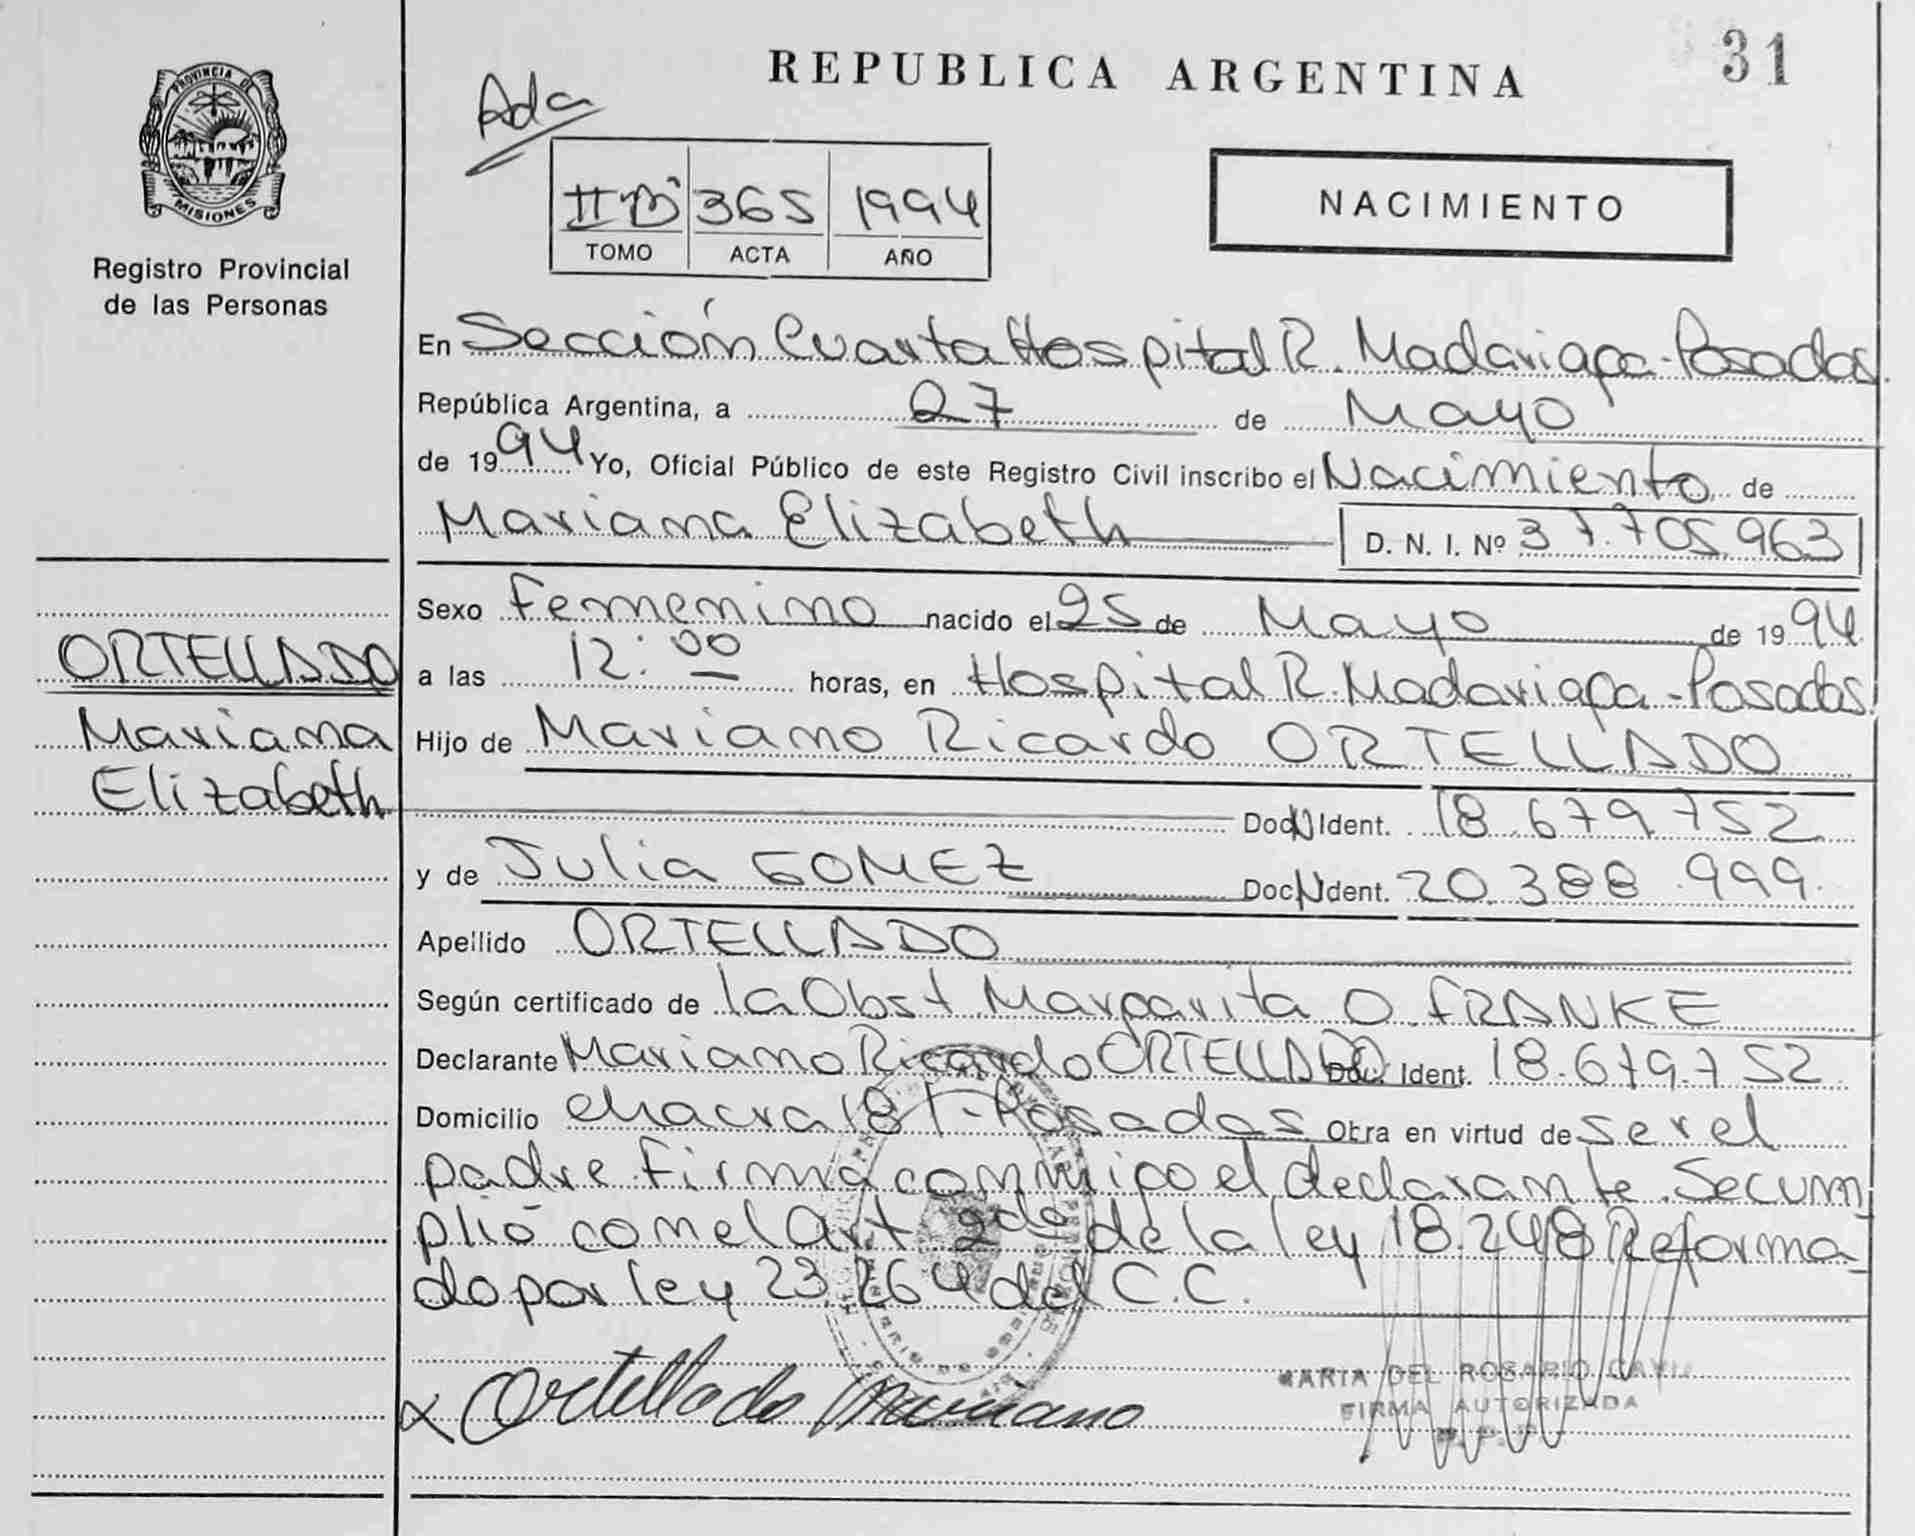 REPUBLICA ARGENTINA
31
PROVINCIA DE
MISIONES
Registro Provincial
de las Personas
Ada
IIB 365 1994
TOMO ACTA AÑO
NACIMIENTO
En Sección Cuarta Hospital R. Madariaga - Posadas.
República Argentina, a 27 de Mayo
de 1994 Yo, Oficial Público de este Registro Civil inscribo el Nacimiento de
Mariana Elizabeth D. N. I. Nº 37.705.963
Sexo Femenino nacido el 25 de Mayo de 1994
a las 12:00 horas, en Hospital R. Madariaga - Posadas.
Hijo de Mariano Ricardo ORTELLADO
Doc N Ident. 18.679.752
y de Julia GOMEZ Doc N Ident. 20.388.999.
Apellido ORTELLADO
Según certificado de la Obst Margarita O. FRANKE
Declarante Mariano Ricardo ORTELLADO Doc. Ident. 18.679.752
Domicilio chacra 181 - Posadas Obra en virtud de ser el
padre. Firma conmigo el declarante. Se cum
plió con el Art 2do de la ley 18.248 Reforma_
do por ley 23.264 del C.C.
ORTELLADO
Mariana
Elizabeth
x Ortellado Mariano
MARIA DEL ROSARIO
FIRMA AUTORIZADA